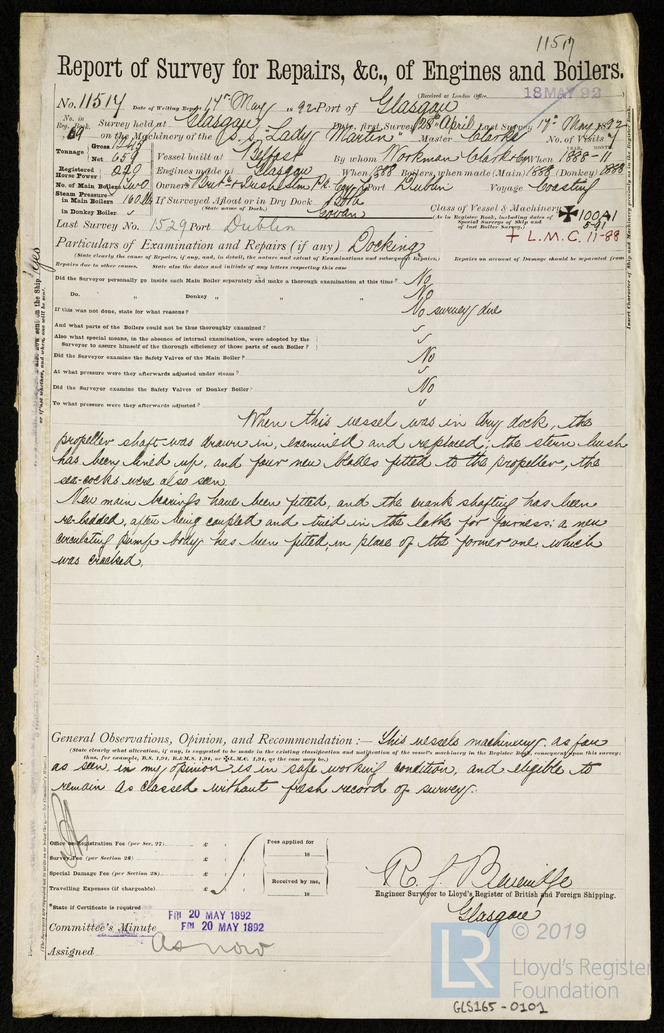 11517
Report of Survey for Repairs, &c., of Engines and Boilers.
(Received at London Office
18 MAY 92
No. 11517 Date of Writing Report 17th May 92 Port of Glasgow
No. in Reg. Book. Survey held at Glasgow Date, first Survey 28th April Last Survey 17th May 1892
69 on the Machinery of the S.S. "Lady Martin" Master Clarke No. of Visits
Tonnage Gross 1245 Net 659 Vessel built at Belfast By whom Workman Clark & Co When 1888-11
Registered Horse Power 249 Engines made at Glasgow When 1888 Boilers, when made (Main) 1888 (Donkey) 1888
No. of Main Boilers two Owners Port Dublin Voyage Coasting
Steam Pressure in Main Boilers 160 lbs If Surveyed Afloat or in Dry Dock Both
in Donkey Boiler (State name of Dock.) Govan
Class of Vessel & Machinery 100A1
(As in Register Book, including dates of Special Surveys of Ship and of last Boiler Survey.) 5-91
+ L.M.C. 11-88
Last Survey No. 1529 Port Dublin
Particulars of Examination and Repairs (if any) Docking
(State clearly the cause of Repairs, if any, and, in detail, the nature and extent of Examinations and subsequent Repairs. Repairs on account of Damage should be separated from
Repairs due to other causes. State also the dates and initials of any letters respecting this case
Did the Surveyor personally go inside each Main Boiler separately and make a thorough examination at this time? No
Do. „ Donkey „ „ „ „ No
If this was not done, state for what reasons? No survey due
And what parts of the Boilers could not be thus thoroughly examined?
Also what special means, in the absence of internal examination, were adopted by the
Surveyor to assure himself of the thorough efficiency of those parts of each Boiler?
Did the Surveyor examine the Safety Valves of the Main Boiler? No
At what pressure were they afterwards adjusted under steam?
Did the Surveyor examine the Safety Valves of Donkey Boiler? No
To what pressure were they afterwards adjusted?
When this vessel was in dry dock, the
propeller shaft was drawn in, examined and replaced; the stern bush
has been lined up, and four new blades fitted to the propeller, the
sea-cocks were also seen.
New main bearings have been fitted, and the crank shafting has been
re-bedded, after being coupled and tried in the lathe for fairness: a new
circulating pump body has been fitted, in place of the former one which
was cracked.
General Observations, Opinion, and Recommendation :— This vessels machinery, as far
(State clearly what alteration, if any, is suggested to be made in the existing classification and notification of the vessel's machinery in the Register Book, consequent upon this survey;
thus, for example, B.S. 1,91, B.&M.S. 1,91, or L.M.C. 1,91, as the case may be.)
as seen, in my opinion is in safe working condition, and eligible to
remain as classed without fresh record of survey.
Office or Registration Fee (per Sec. 27) £ Fees applied for
Survey Fee (per Section 28) £ 18
Special Damage Fee (per Section 28) £ Received by me,
Travelling Expenses (if chargeable) £ 18
Engineer Surveyor to Lloyd's Register of British and Foreign Shipping.
Glasgow
*State if Certificate is required
FRI 20 MAY 1892
Committee's Minute FRI 20 MAY 1892
Assigned As now
© 2019
LR
Lloyd's Register
Foundation
GLS165-0101